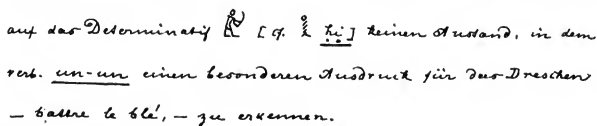 auf das Determinativ [cf. ḥi] keinen Anstand, in dem
verb. un-un einen besonderen Ausdruck für das Dreschen
– battre le blé, – zu erkennen.